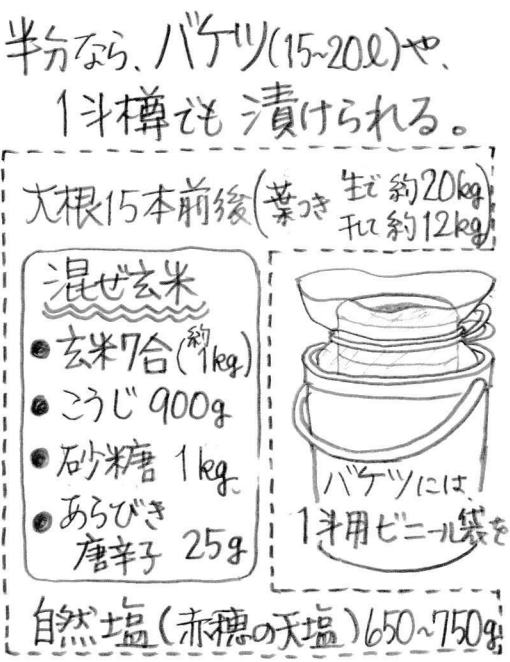 半分なら、バケツ(15~20ℓ)や、
1斗樽でも漬けられる。
大根15本前後(葉つき 生で約20kg
干して約12kg)
混ぜ玄米
・玄米7合(約1kg)
・こうじ 900g
・砂糖 1kg
・あらびき
唐辛子 25g
バケツには、
1斗用ビニール袋を
自然塩(赤穂の天塩)650~750g